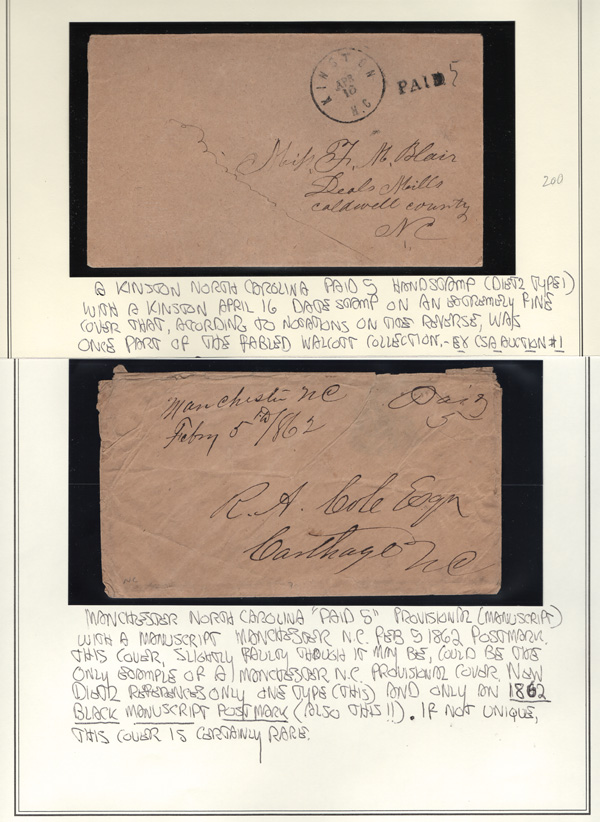 KINSTON
APR
16
N.C
PAID 5
Miss F. M. Blair
Deals Mills
caldwell county
NC
200
A KINSTON NORTH CAROLINA PAID 5 HANDSTAMP (DIETZ TYPE I)
WITH A KINSTON APRIL 16 DATE STAMP ON AN EXTREMELY FINE
COVER THAT, ACCORDING TO NOTATIONS ON THE REVERSE, WAS
ONCE PART OF THE FABLED WALCOTT COLLECTION. - EX CSA AUCTION #1
Manchester NC
Feby 5th/1862
Paid
5
R. A. Cole Esqr
Carthage NC
NC
MANCHESTER NORTH CAROLINA "PAID 5" PROVISIONAL (MANUSCRIPT)
WITH A MANUSCRIPT MANCHESTER N.C. FEB 5 1862 POSTMARK.
THIS COVER, SLIGHTLY FAULTY THOUGH IT MAY BE, COULD BE THE
ONLY EXAMPLE OF A MANCHESTER N.C. PROVISIONAL COVER, NEW
DIETZ REFERENCES ONLY ONE TYPE (THIS) AND ONLY AN 1862
BLACK MANUSCRIPT POSTMARK (ALSO THIS!!). IF NOT UNIQUE,
THIS COVER IS CERTAINLY RARE.